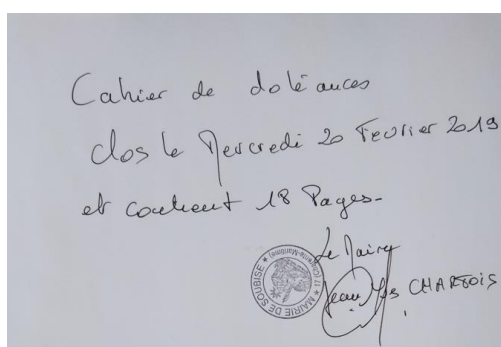 Cahier de doléances
clos le Mercredi 20 Fevrier 2019
et contient 18 Pages-
Le Maire
Jean Yves CHARTOIS
* MAIRIE DE SOUBISE * 17 (Charente-Maritime)